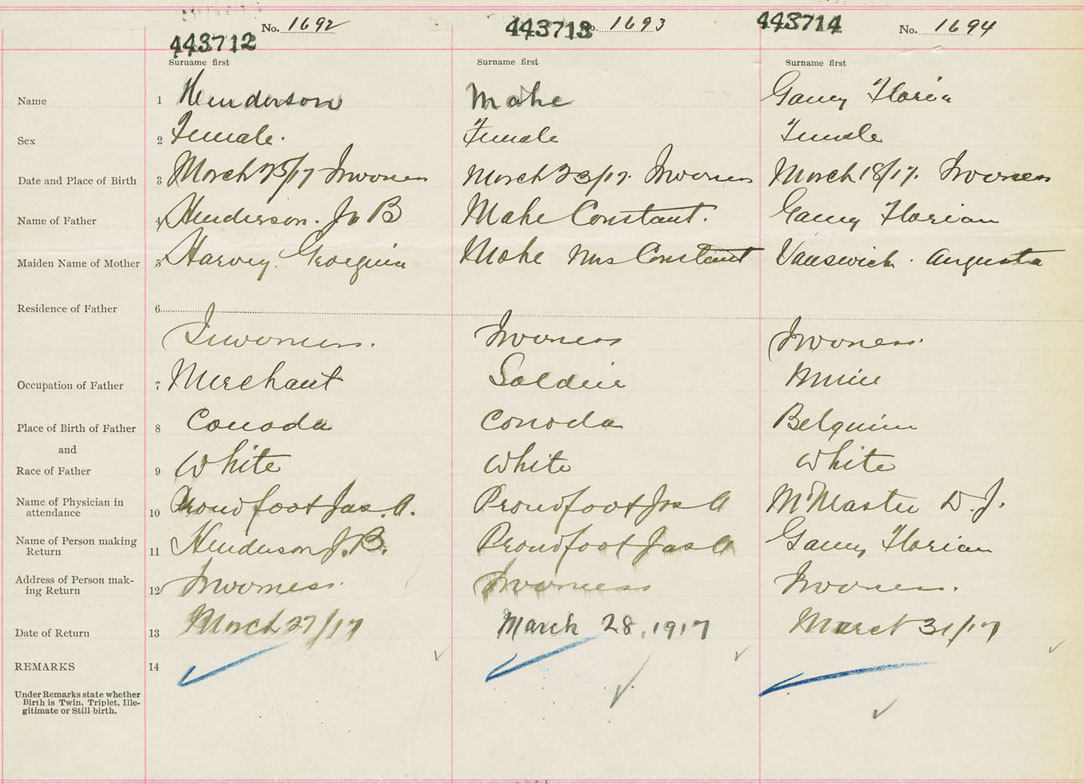 443712 No. 1692 443713 No. 1693 443714 No. 1694
Surname first Surname first Surname first
Name 1 Henderson Mahe Florian
Sex 2 Female. Female Female
Date and Place of Birth 3 March 25/17 Inverness March 23/17. Inverness March 18/17. Inverness
Name of Father 4 Henderson. Jn B Mahe Constant. Florian
Maiden Name of Mother 5 Harvey. Georgina Mahe Mrs Constant Augusta
Residence of Father 6
Inverness. Inverness Inverness.
Occupation of Father 7 Merchant Soldier Miner
Place of Birth of Father 8 Canada Canada Belgium
and
Race of Father 9 White White White
Name of Physician in
attendance 10 Proudfoot Jas. A. Proudfoot Jas A McMaster D. J.
Name of Person making
Return 11 Henderson J. B. Proudfoot Jas A Florian
Address of Person mak-
ing Return 12 Inverness. Inverness Inverness.
Date of Return 13 March 27/17 March 28, 1917 March 31/17
REMARKS 14
Under Remarks state whether
Birth is Twin, Triplet, Ille-
gitimate or Still-birth.